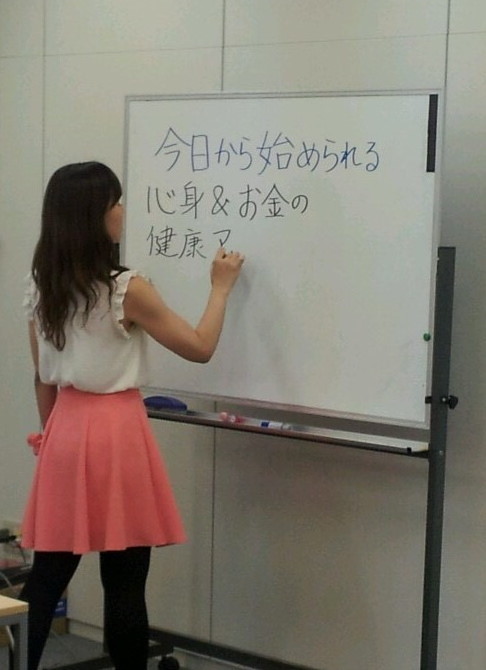 今日から始められる
心身&お金の
健康ア